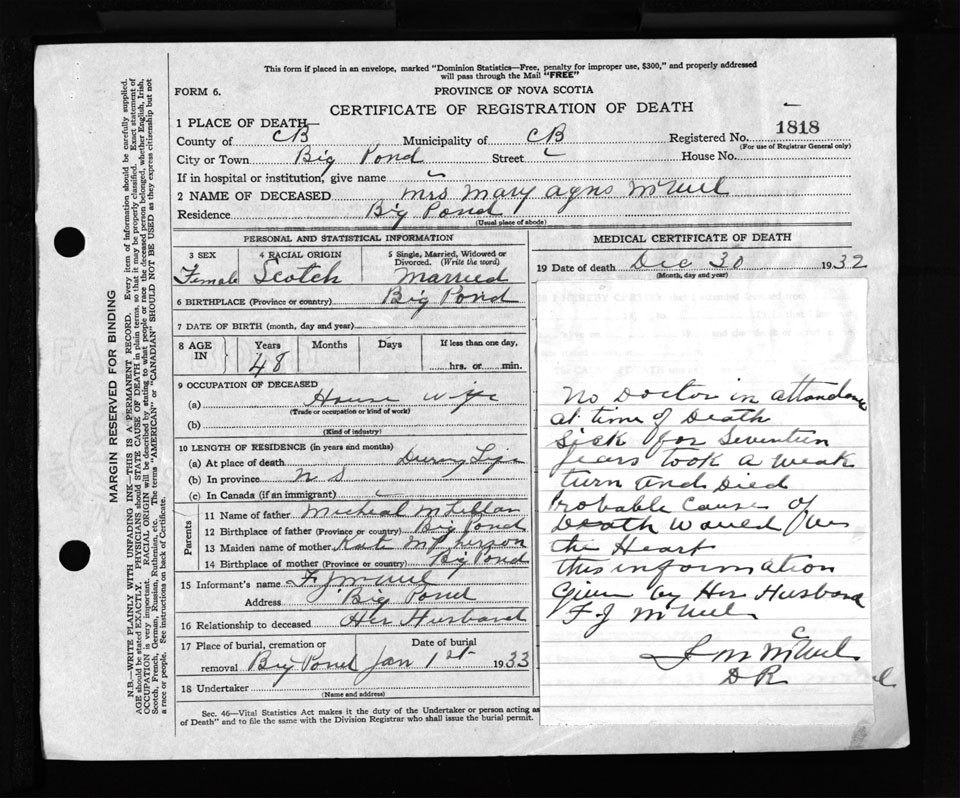 This form if placed in an envelope, marked "Dominion Statistics—Free, penalty for improper use, $300," and properly addressed
will pass through the Mail "FREE"
FORM 6.
PROVINCE OF NOVA SCOTIA
CERTIFICATE OF REGISTRATION OF DEATH
1 PLACE OF DEATH—
County of CB Municipality of CB Registered No. 1818
(For use of Registrar General only)
City or Town Big Pond Street House No.
If in hospital or institution, give name
2 NAME OF DECEASED Mrs Mary Agns McNeil
Residence Big Pond
(Usual place of abode)
PERSONAL AND STATISTICAL INFORMATION
3 SEX 4 RACIAL ORIGIN 5 Single, Married, Widowed or Divorced. (Write the word)
Female Scotch Married
6 BIRTHPLACE (Province or country) Big Pond
7 DATE OF BIRTH (month, day and year)
8 AGE IN Years Months Days If less than one day,
48 hrs. or min.
9 OCCUPATION OF DECEASED
(a) House Wife
(Trade or occupation or kind of work)
(b)
(Kind of industry)
10 LENGTH OF RESIDENCE (in years and months)
(a) At place of death During Life
(b) In province N S
(c) In Canada (if an immigrant)
Parents
11 Name of father Micheal McLellan
12 Birthplace of father (Province or country) Big Pond
13 Maiden name of mother Kate McPherson
14 Birthplace of mother (Province or country) Big Pond
15 Informant's name F J McNeil
Address Big Pond
16 Relationship to deceased Her Husband
17 Place of burial, cremation or removal Date of burial
Big Pond Jan 1st 1933
18 Undertaker
(Name and address)
Sec. 46—Vital Statistics Act makes it the duty of the Undertaker or person acting as
of Death" and to file the same with the Division Registrar who shall issue the burial permit.
MEDICAL CERTIFICATE OF DEATH
19 Date of death Dec 30 1932
(Month, day and year)
No Doctor in attendance
at time of Death
Sick for Seventeen
years took a weak
turn and Died
Probable Cause of
Death would be
the Heart
this information
Given by Her Husband
F J McNeil
McNeil
D R
MARGIN RESERVED FOR BINDING
N.B.—WRITE PLAINLY WITH UNFADING INK—THIS IS A PERMANENT RECORD. Every item of information should be carefully supplied.
AGE should be stated EXACTLY. PHYSICIANS should STATE CAUSE OF DEATH in plain terms, so that it may be properly classified. Exact statement of
OCCUPATION is very important. RACIAL ORIGIN will be described by stating to what people or race the deceased person belonged, whether English, Irish,
Scotch, French, German, Russian, Ruthenian, etc. The terms "AMERICAN" or "CANADIAN" SHOULD NOT BE USED as they express citizenship but not
a race or people. See instructions on back of Certificate.